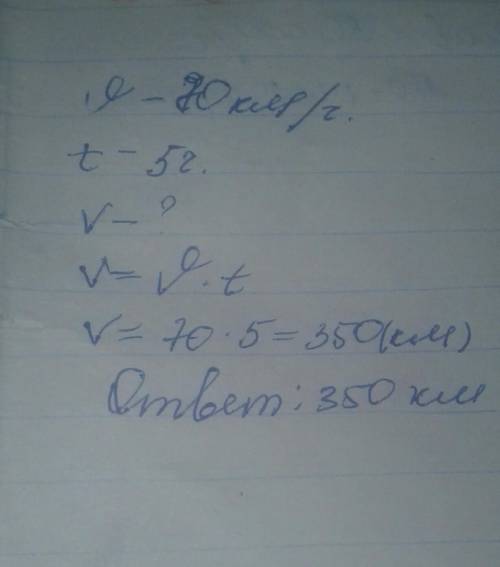 𝜗 – 70 км/ч.
t – 5ч.
V – ?
V = 𝜗 · t
V = 70 · 5 = 350(км)
Ответ: 350 км